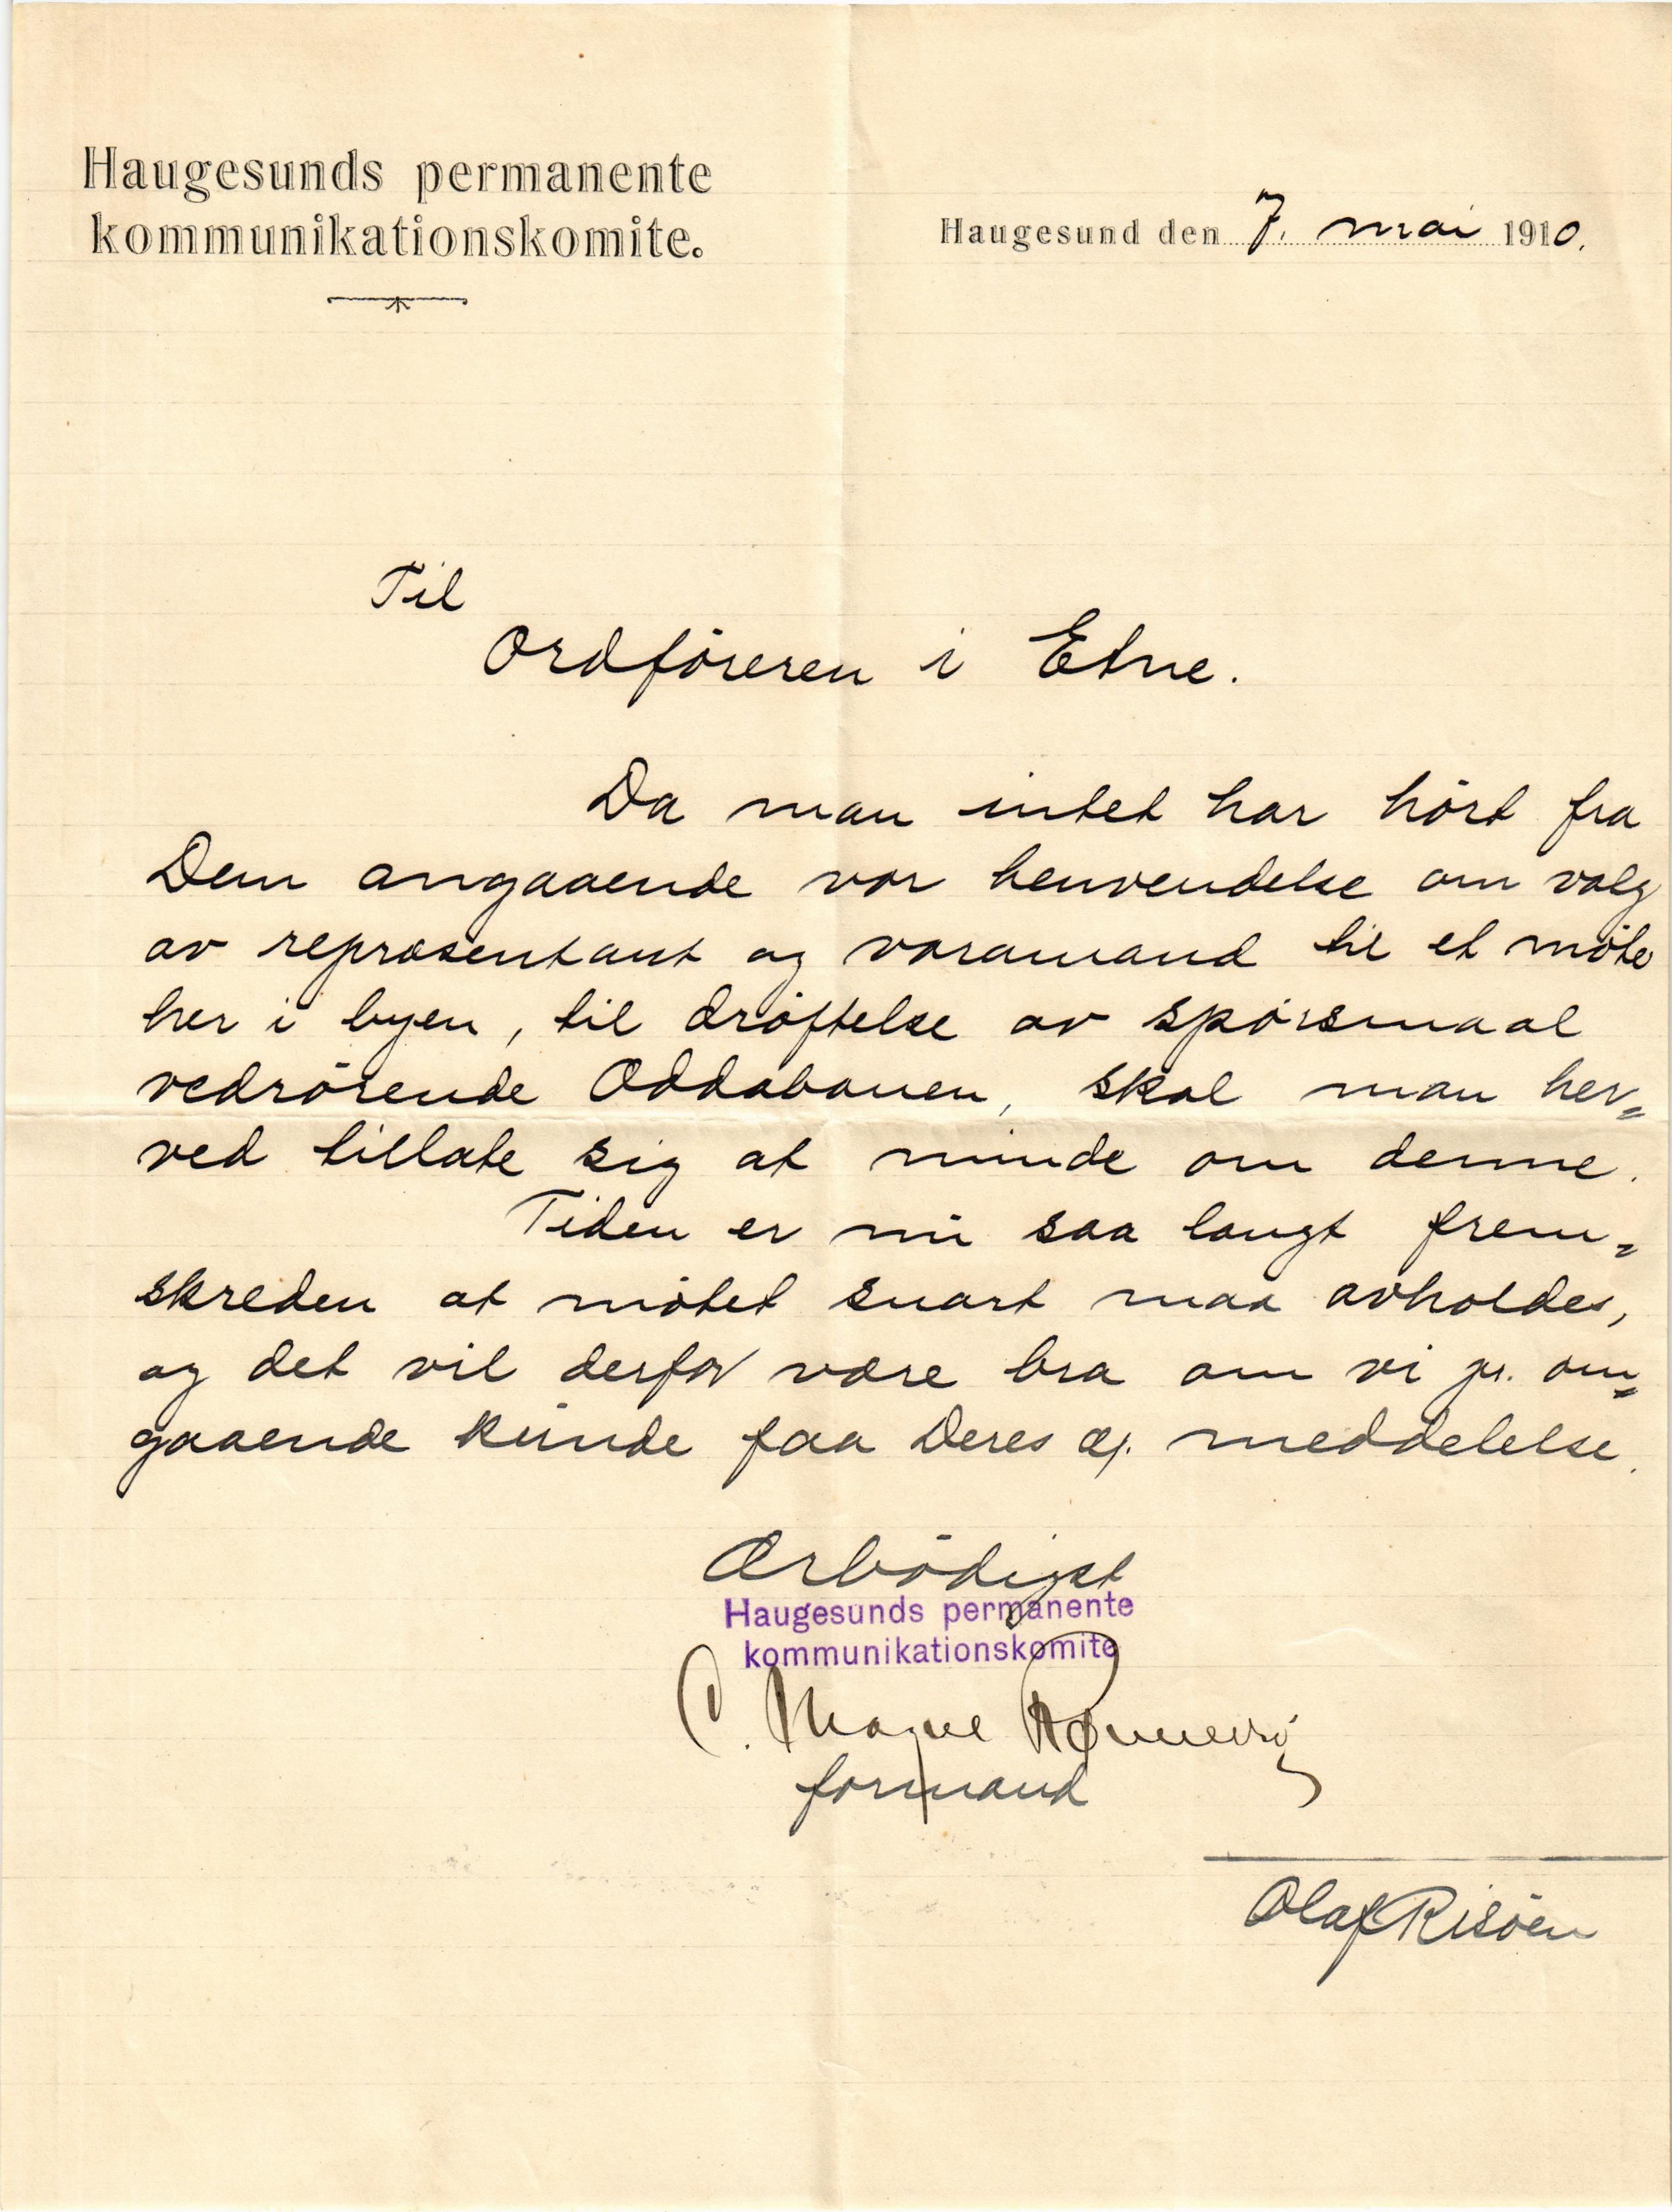 Haugesunds permanente
kommunikationskomite.
Haugesund den 7. mai 1910.
Til
Ordføreren i Etne.
Da man intet har hört fra
Dem angaaende vor henvendelse om valg
av repræsentant og varamand til et möte
her i byen, til dröftelse av spörsmaal
vedrörende Oddabanen, skal man her=
ved tillate sig at minde om denne.
Tiden er nu saa langt frem=
skreden at mötet snart maa avholdes,
og det vil derfor være bra om vi pr. om=
gaaende kunde faa Deres ær. meddelelse.
Ærbödigst
Haugesunds permanente
kommunikationskomite
C. Magne Rønnevig
formand
Olaf Risöen